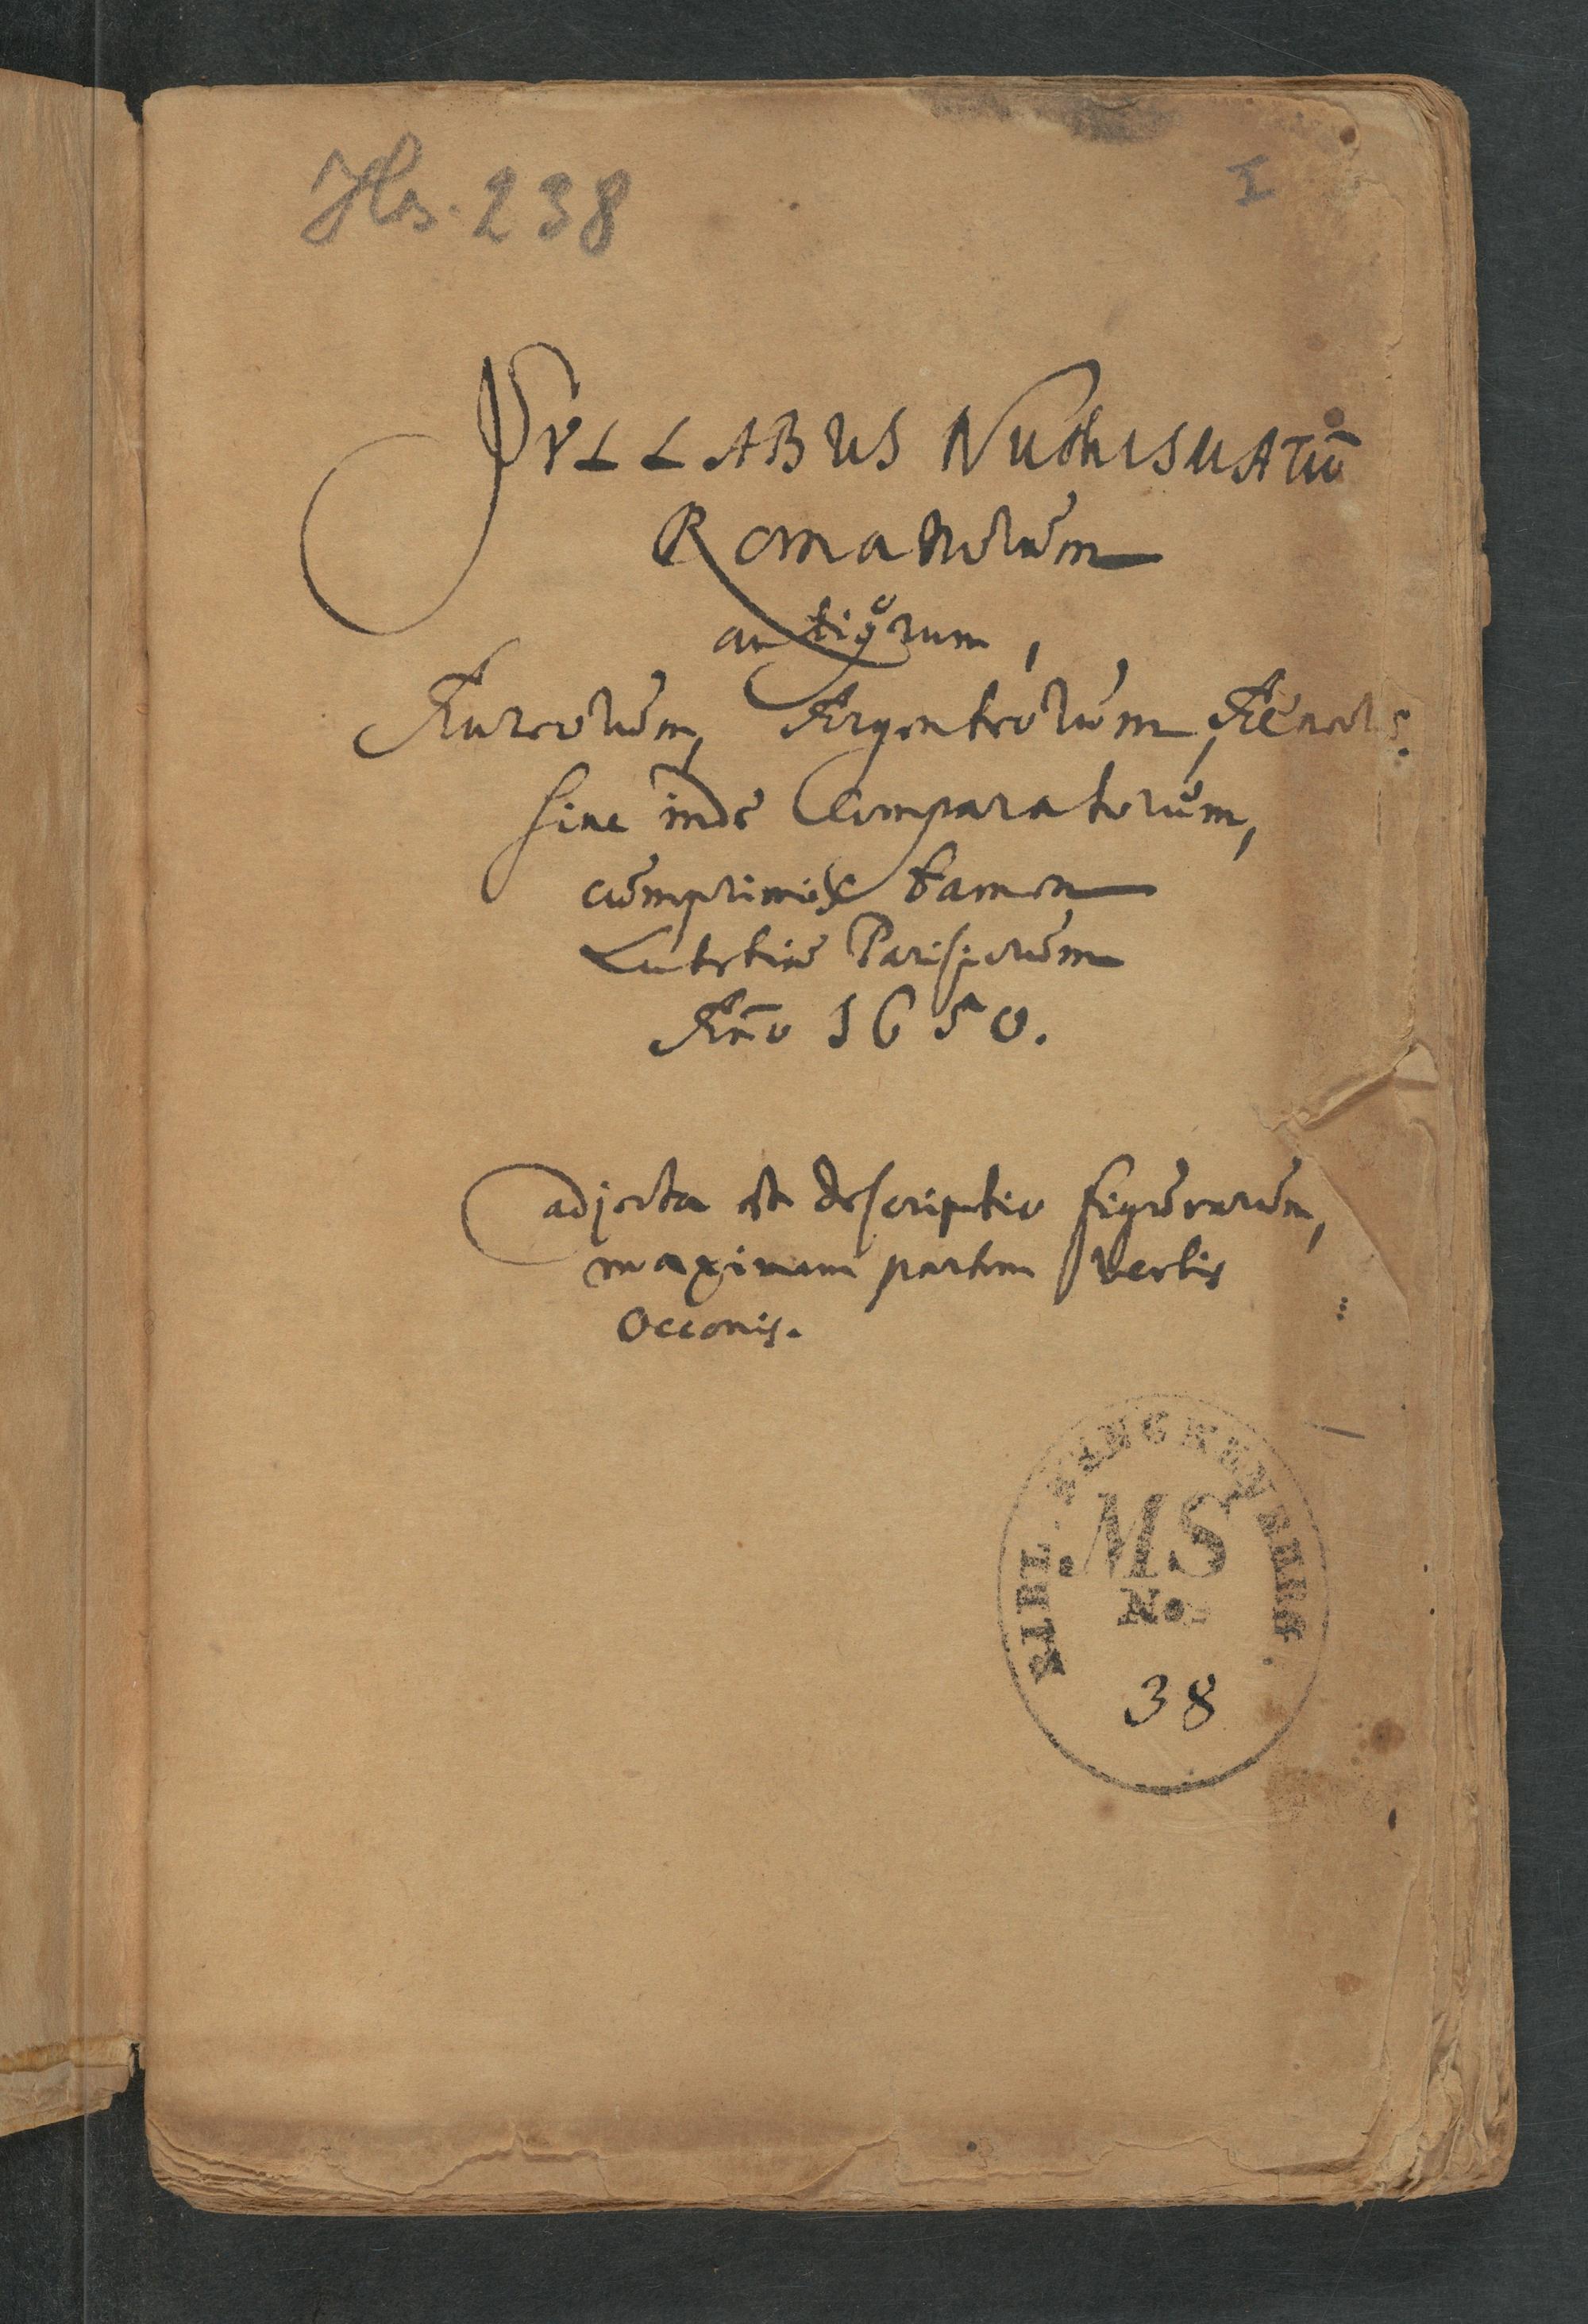 Hs. 238
I
SYLLABUS NUMISMATŪ
Romanorum
antiqorum,
Aureorum, Argenteorum, Aeneor.
hinc inde Comparatorum,
cumprimis tamen
Lutetiae Parisiorum
Año 1650.
adjecta est descriptio figurarum,
maximam partem verbis
Occonis.
BIBL. UFFENBACH
MS
No.
38